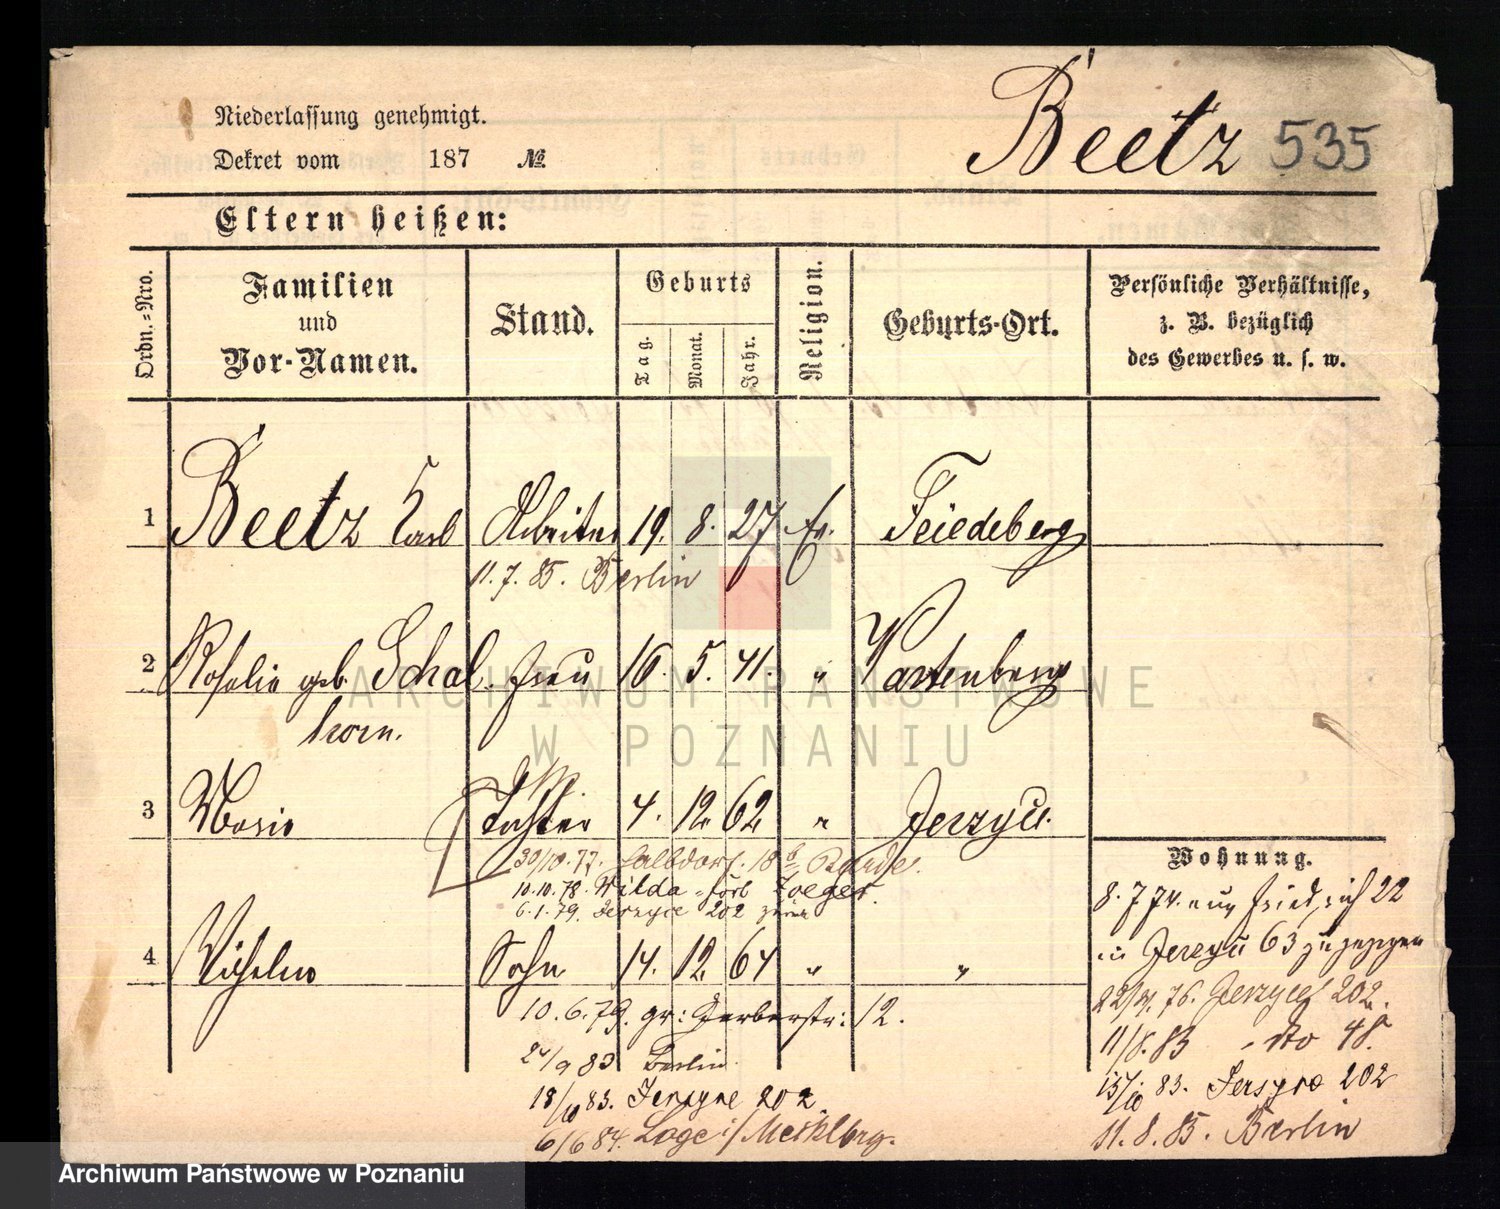 Niederlassung genehmigt.
Dekret vom 187 №
Beetz 535
Eltern heißen:
Ordn.-Nro.
Familien
und
Vor-Namen.
Stand.
Geburts
Tag.
Monat.
Jahr.
Religion.
Geburts-Ort.
Persönliche Verhältnisse,
z. B. bezüglich
des Gewerbes u. s. w.
1 Beetz Carl Arbeiter 19. 8. 27 Ev. Friedeberg
11. 7. 85. Berlin
2 Rosalie geb. Schal Frau 16. 5. 41. " Wartenberg
korn.
3 Marie Tochter 4. 12. 62 " Jerzyce.
30/10. 77. 18
10.10.78. Wilda
6.1.79. Jerzyce 202
4 Wilhelm Sohn 14. 12. 64 " "
10.6.79. gr: Gerberstr: 12.
83 Berlin
18/10 83. Jerzyce 202.
6/6 84. Loge i/ Mecklbrg.
Wohnung.
8. 7 74. aus Friedrich 22
in Jerzyce 63 zugezogen
76. Jerzyce 202.
11/8. 83 dto 48.
83. Jerzyce 202
11. 8. 85. Berlin
ARCHIWUM PAŃSTWOWE
W POZNANIU
Archiwum Państwowe w Poznaniu